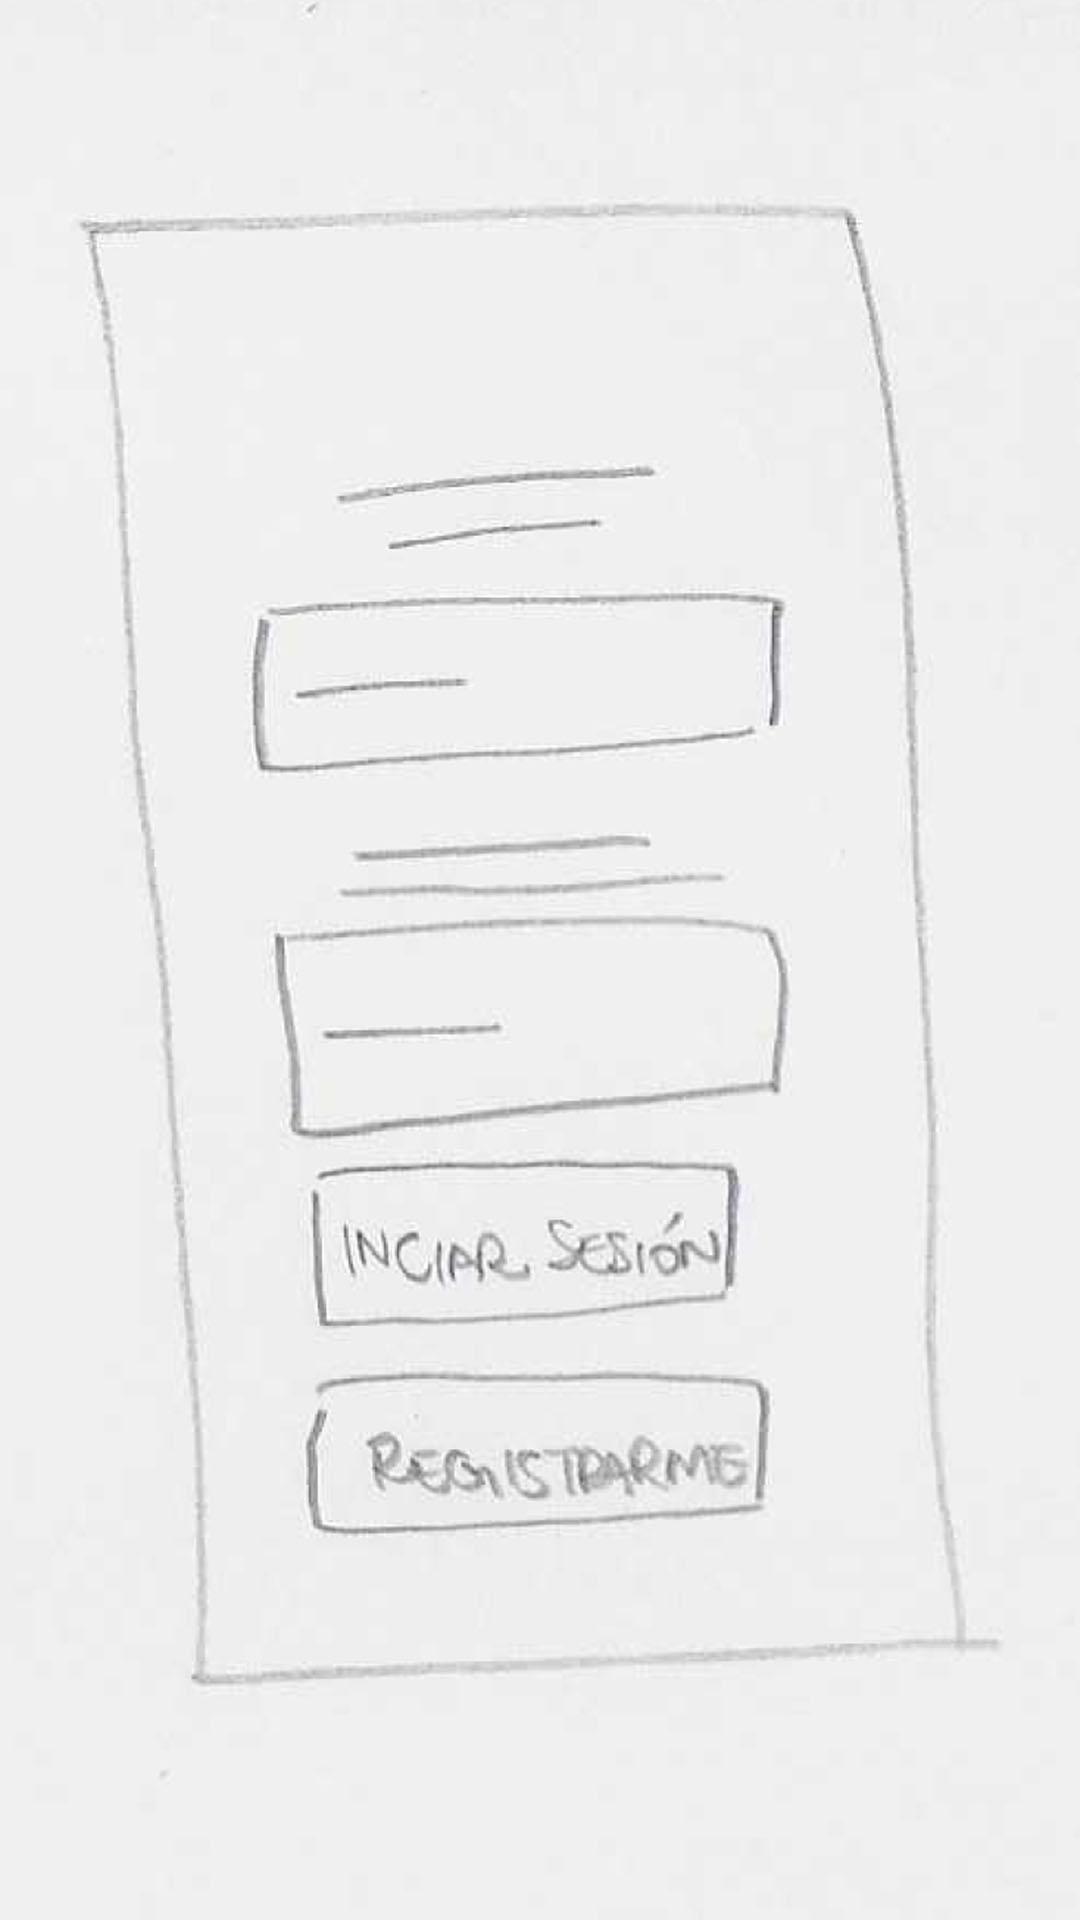 INCIAR SESIÓN
REGISTRARME